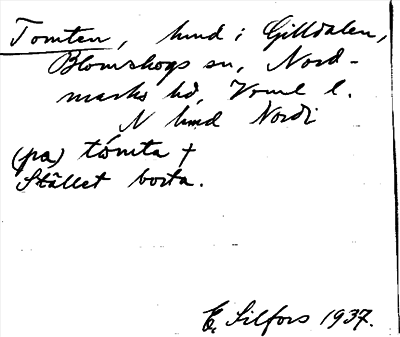 Tomten, hmd i Gilldalen,
Blomskogs sn, Nord-
marks hd, Verml l.
N hmd Nordi
(pa) tómta +
Stället borta.
E. Silfors 1937.